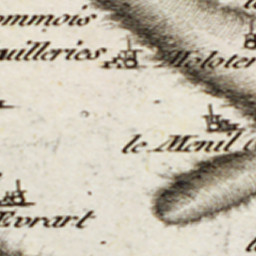 ommois
uilleries
Moloter
le Menil
Evrart